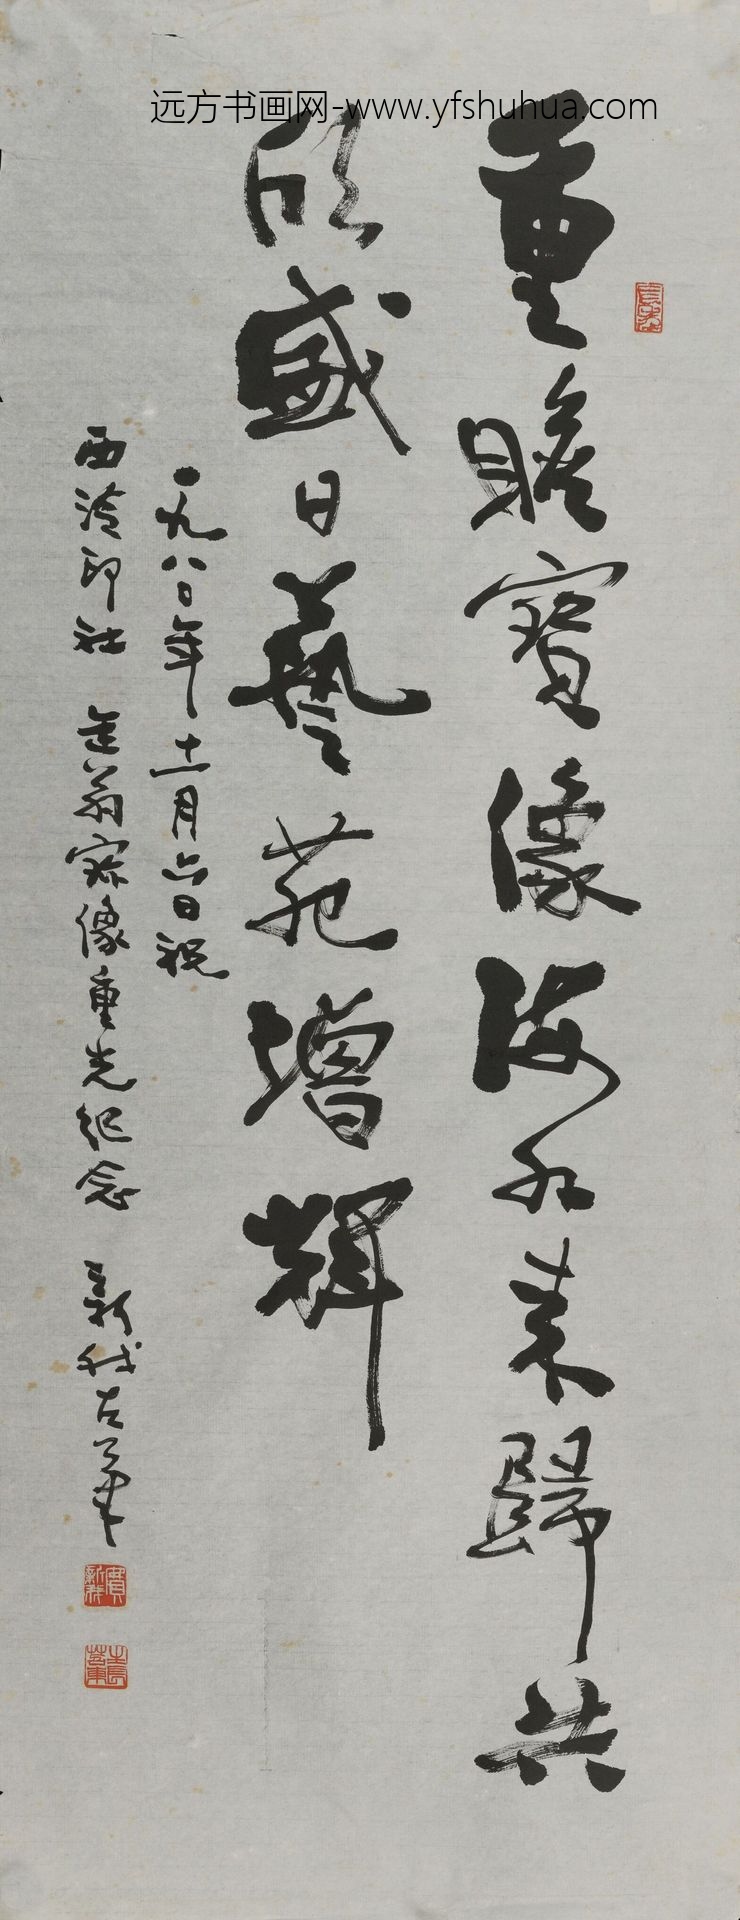 远方书画网-www.yfshuhua.com
重瞻寶像海外来歸共
欣盛日藝苑增輝
一九八〇年十一月六日祝
西泠印社 缶翁寳像重光紀念 新我左筆